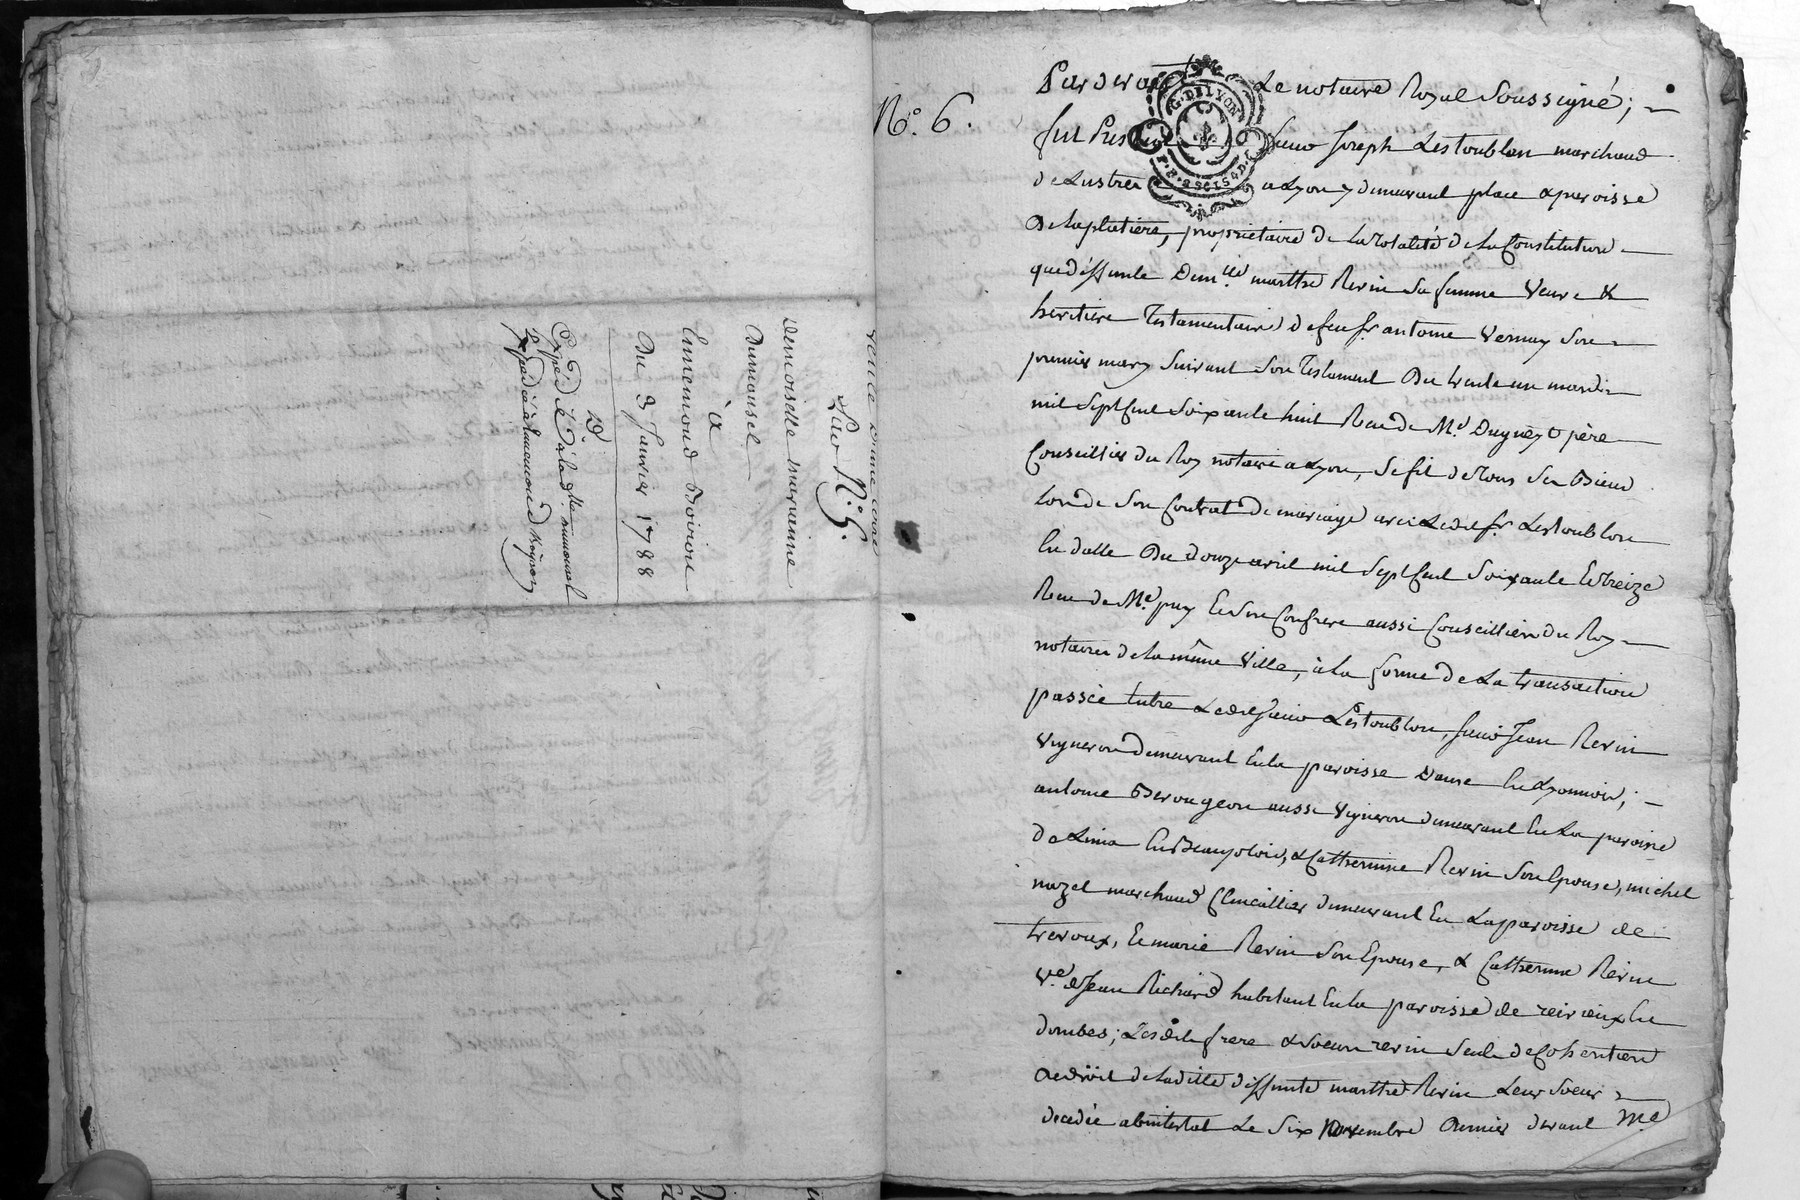 vente d'une terre
Lac N.° 6.
Demoiselle mervenne
Dumousel
à
Ennemond Boiron
Du 3 Janvier 1788
Expéd.ié à la d.lle dumousel
Expédié à Ennemond Boiron
N.° 6.
Pardevant Le notaire Royal Soussigné;
fut Présent Sieur Joseph Lestoublon marchand
de Lustres a Lyon y demeurant place & paroisse
De la platiere, propriétaire de La totalité de La Constitution
que deffunte Dem.lle marthe Revin Sa femme Veuve &
heritiere Testamentaire de feu Sr antoine Vernay Son
premier mary Suivant Son Testament Du trente un mardi
mil Sept Cent Soixante huit Reçu de M.e Dugueyt père
Conseiller du Roy notaire a Lyon, Se fit de tous Ses Biens
Lors de Son Contrat de mariage avec Ledit Sr Lestoublon
En datte Du douze avril mil Sept Cent Soixante Et treize
Reçu de M.e puy Et Son Confrere aussi Conseillier du Roy
notaires de la même Ville, à la forme de La transaction
passée Entre Ledit Sieur Lestoublon, Sieur Jean Revin
Vigneron demeurant En la paroisse D'anse En Lyonnois;
antoine Berougeon aussi Vigneron demeurant En La paroisse
de Limas En Beaujolois, & Catherine Revin Son Epouse, michel
nazet marchand Clincallier demeurant En La paroisse de
trevoux, Et marie Revin Son Epouse, & Catherine Revin
V.e de Jean Richard habitant En la paroisse de reirieux En
dombes; Lesdits frere & Soeurs revin Seuls & Cohéritiers
De droit de Laditte deffunte marthe Revin Leur Soeur
decedée abintestat Le Six Novembre Dernier devant M.e